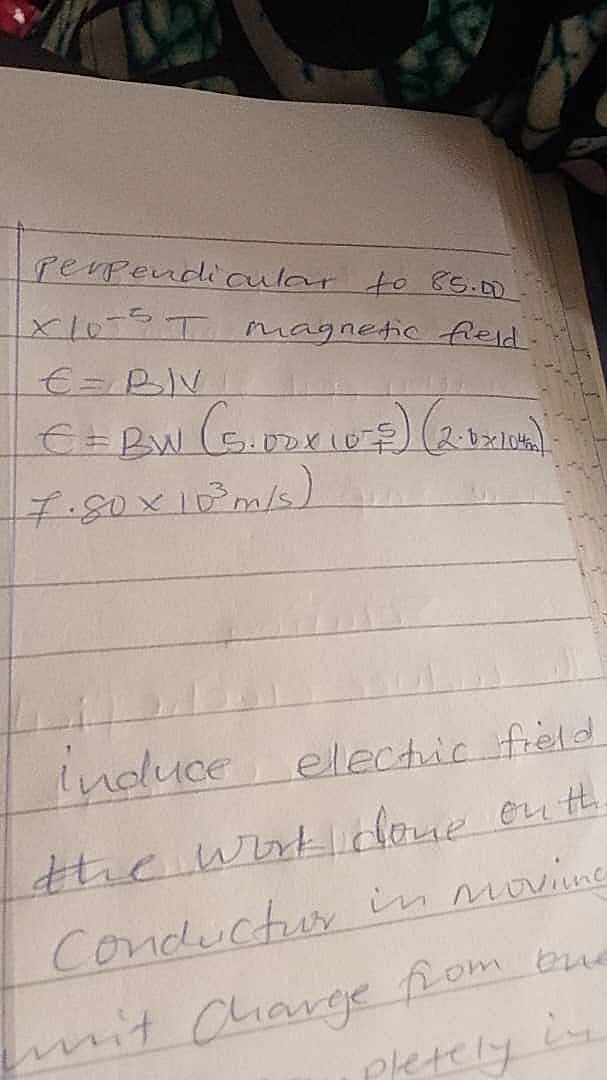 perpendicular to 85.00
×10⁻⁵ T magnetic field
ε = BlV
ε = BW (5.00×10⁻⁵T) (2.0×10⁴m)
7.80 × 10³ m/s)
induce electric field
the work done on th
Conductor in moving
unit Charge from one
pletely in